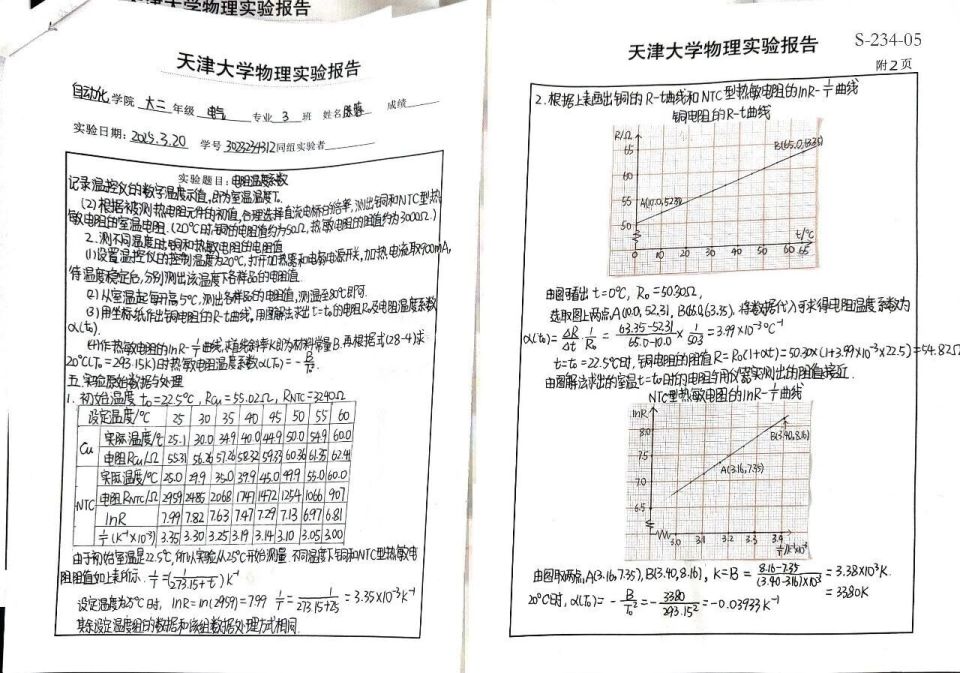 天津大学物理实验报告
天津大学物理实验报告
自动化学院 大二年级 电气专业 3班 姓名 成绩
实验日期：2025.3.20 学号 3023234312 同组实验者
实验题目：电阻温度系数
记录温控仪的数字温度示值，即为室温温度T₀.
(2) 根据被测热电阻元件的初值，合理选择直流电桥的倍率，测出铜和NTC型热
敏电阻的室温电阻.(20℃时铜的电阻值约为50Ω，热敏电阻的阻值约为3000Ω.)
2. 测不同温度时铜和热敏电阻的电阻值
(1) 设置温控仪的控制温度为20℃，打开加热器和电源开关，加热电流取900mA,
待温度稳定后，分别测出该温度下各样品的电阻值.
(2) 从室温起每升高5℃，测出各样品的电阻值，测温至80℃即可.
(3) 用坐标纸作出铜电阻的R-t曲线，用图解法求出t=t₀的电阻R₀及电阻温度系数
α(t₀).
(4) 作热敏电阻的lnR-1/T曲线，求斜率K即为材料常量B.再根据式(28-4)求
20℃(T₀=293.15K)的热敏电阻温度系数α(T₀)=-B/T₀².
五. 实验原始数据与处理
1. 初始温度 t₀=22.5℃, RCu=55.02Ω, RNTC=3240Ω
设定温度/℃ 25 30 35 40 45 50 55 60
Cu 实际温度/℃ 25.1 30.0 34.9 40.0 44.9 50.0 54.9 60.0
电阻RCu/Ω 55.31 56.26 57.26 58.32 59.33 60.36 61.35 62.41
NTC 实际温度/℃ 25.0 29.9 35.0 39.9 45.0 49.9 55.0 60.0
电阻RNTC/Ω 2959 2485 2068 1747 1472 1254 1066 907
lnR 7.99 7.82 7.63 7.47 7.29 7.13 6.97 6.81
1/T (K⁻¹×10⁻³) 3.35 3.30 3.25 3.19 3.14 3.10 3.05 3.00
由于初始室温是22.5℃, 所以实验从25℃开始测量. 不同温度下铜和NTC型热敏电
阻阻值如上表所示. 1/T=(1/(273.15+t))K⁻¹
设定温度为25℃时, lnR=ln(2959)=7.99 1/T=1/(273.15+25)=3.35×10⁻³K⁻¹
其余设定温度组的数据和该组数据处理方式相同.
天津大学物理实验报告
S-234-05
附2页
2. 根据上表画出铜的R-t曲线和NTC型热敏电阻的lnR-1/T曲线
铜电阻的R-t曲线
R/Ω
B(65.0,63.35)
65
60
55
A(10.0,52.31)
50
0 10 20 30 40 50 60 65
t/℃
由图看出 t=0℃, R₀=50.30Ω,
选取图上两点, A(10.0, 52.31), B(65.0,63.35). 将数据代入可求得电阻温度系数为
α(t₀)=ΔR/Δt·1/R₀=(63.35-52.31)/(65.0-10.0)×1/50.3=3.99×10⁻³℃⁻¹
t=t₀=22.5℃时, 铜电阻的阻值R=R₀(1+αt)=50.30×(1+3.99×10⁻³×22.5)=54.82Ω
由图解法求出的室温t=t₀时的电阻与用仪器实测出的阻值接近.
NTC型热敏电阻的lnR-1/T曲线
lnR
8.0
B(3.40,8.16)
7.5
A(3.16,7.35)
7.0
6.5
3.0 3.1 3.2 3.3 3.4
1/T(K⁻¹×10⁻³)
由图取两点, A(3.16,7.35), B(3.40,8.16), K=B=(8.16-7.35)/((3.40-3.16)×10⁻³)=3.38×10³K.
=3380K
20℃时, α(T₀)=-B/T₀²=-3380/293.15²=-0.03933K⁻¹